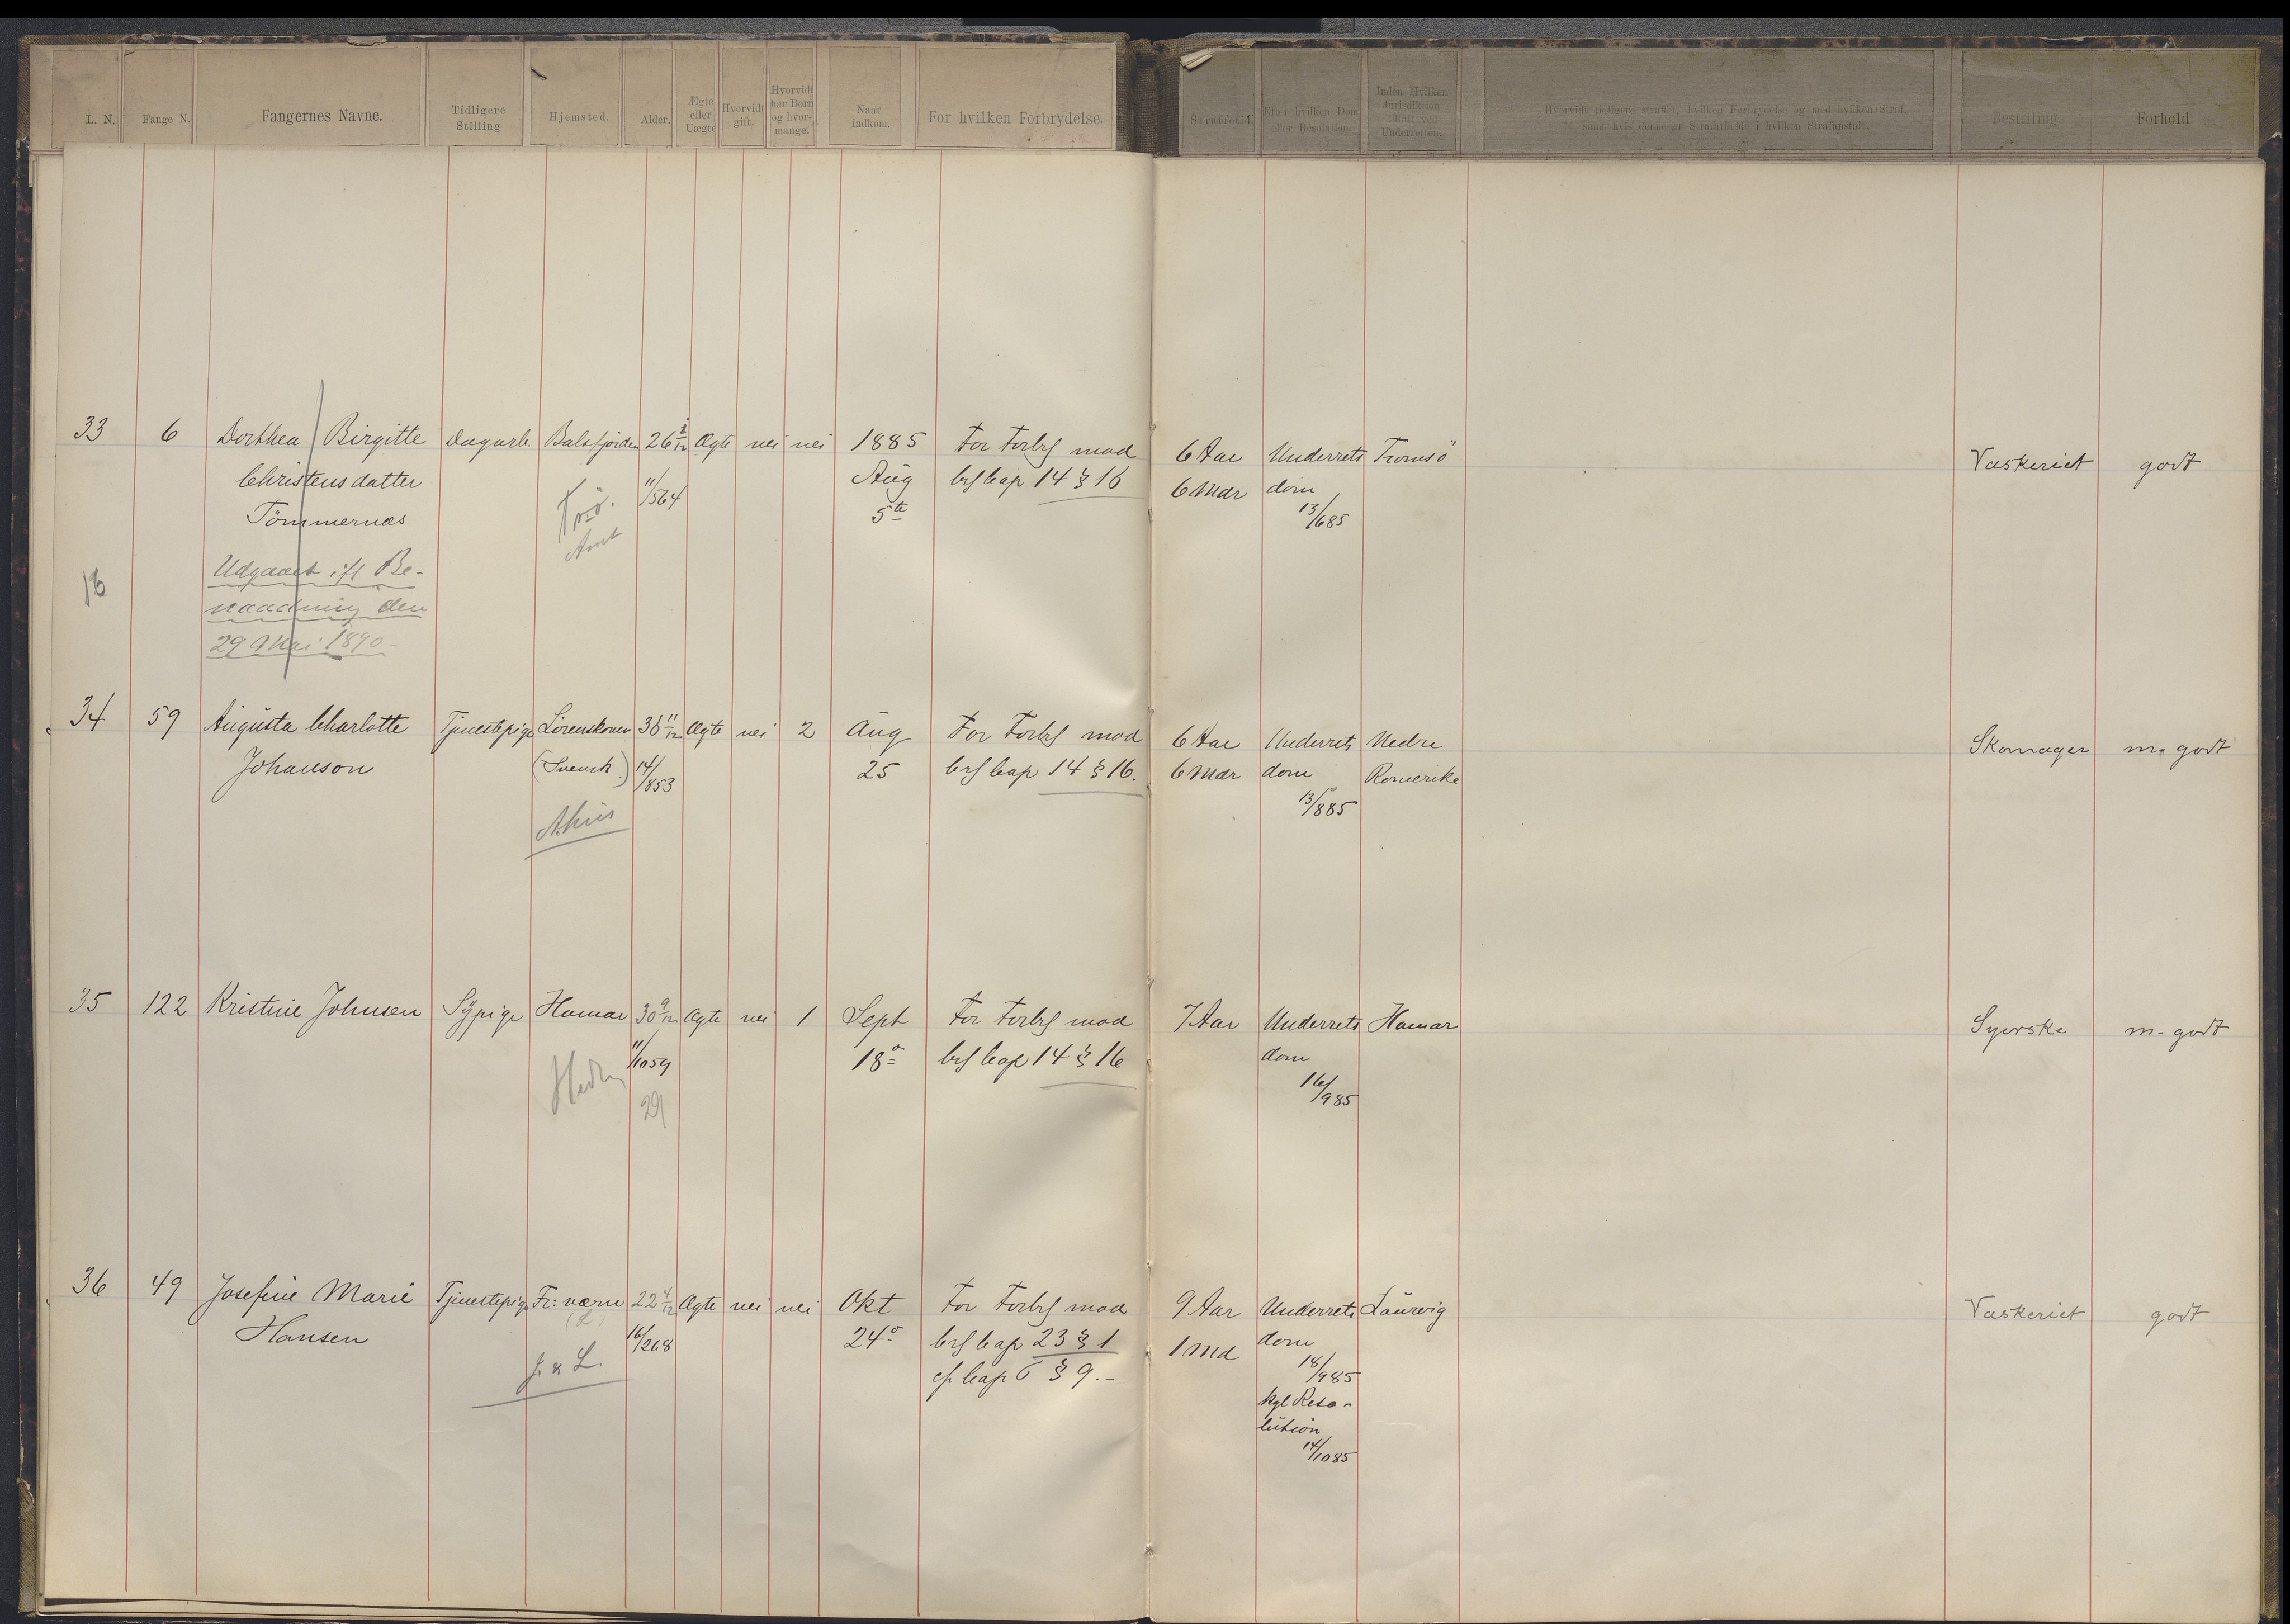 L. N.
Fange N.
Fangernes Navne.
Tidligere
Stilling
Hjemsted.
Alder.
Ægte
eller
Uægte
Hvorvidt
gift.
Hvorvidt
har Børn
og hvor-
mange.
Naar
indkom.
For hvilken Forbrydelse.
Straffetid.
Efter hvilken Dom
eller Resolution.
Inden Hvilken
Jurisdiktion
tiltalt ved
Underretten.
Hvorvidt tidligere straffet, hvilken Forbrydelse og med hvilken Straf,
samt hvis denne er Strafarbeide i hvilken Strafanstalt.
Bestilling
Forhold
33 6 Dorthea Birgitte Dagarb. Balsfjorden 26 1/12 Ægte nei nei 1885 For Forbr mod 6 Aar Underrets Tromsö Vaskeriet godt
Christensdatter 11/564 Aug brf Cap 14 § 16 6 Mdr dom
Tömmernæs Tro. 5te 13/685
Amt
16 Udgaaet ift Be-
naadning den
29 Mai 1890-
34 59 Augusta Charlotte Tjenestepige Lörenskoven 36 11/12 Ægte nei 2 Aug For Forbr mod 6 Aar Underrets Nedre Skomager m. godt
Johanson (Svensk) 14/853 25 brf Cap 14 § 16. 6 Mdr dom Romerike
Ahus 13/885
35 122 Kristine Johnsen Sypige Hamar 30 9/12 Ægte nei 1 Sept For Forbr mod 7 Aar Underrets Hamar Syerske m. godt
11/1059 18de brf Cap 14 § 16 dom
Hedm 29 16/985
36 49 Josefine Marie Tjenestepige Fr: værn 22 4/12 Ægte nei nei Okt For Forbr mod 9 Aar Underrets Laurvig Vaskeriet godt
Hansen (L) 16/268 24de brf Cap 23 § 1 1 Md dom
J. & L. cf Cap 6 § 9.- 18/985
kgl Reso-
lution
14/1085